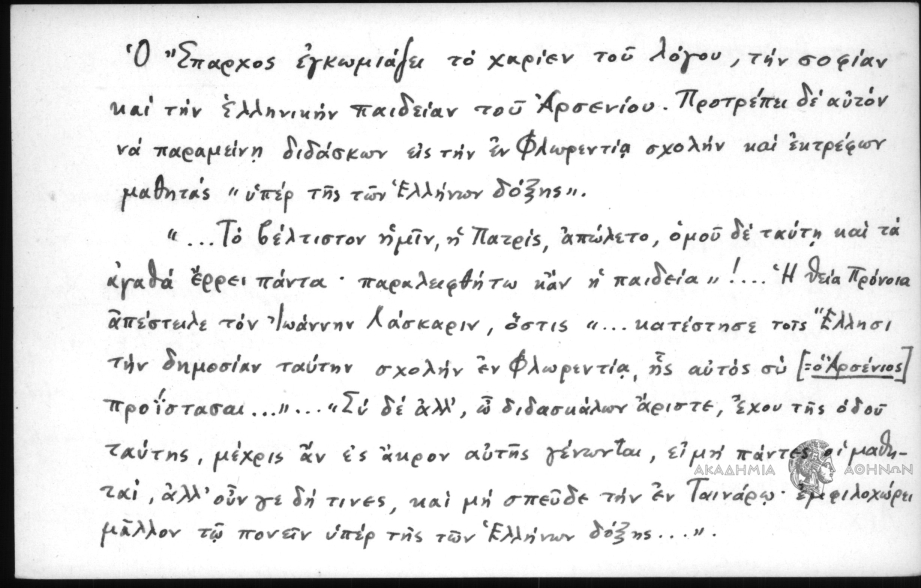 Ὁ Ἔπαρχος ἐγκωμιάζει τό χαρίεν τοῦ λόγου, τήν σοφίαν
καί τήν ἑλληνικήν παιδείαν τοῦ Ἀρσενίου. Προτρέπει δέ αὐτόν
νά παραμείνῃ διδάσκων εἰς τήν ἐν Φλωρεντίᾳ σχολήν καί ἐκτρέφων
μαθητάς "ὑπέρ τῆς τῶν Ἑλλήνων δόξης".
"... Τό βέλτιστον ἡμῖν, ἡ Πατρίς, ἀπώλετο, ὁμοῦ δέ ταύτῃ καί τά
ἀγαθά ἔρρει πάντα · παραλειφθήτω κἄν ἡ παιδεία"!.... Ἡ θεία Πρόνοια
ἀπέστειλε τόν Ἰωάννην Λάσκαριν, ὅστις "... κατέστησε τοῖς Ἕλλησι
τήν δημοσίαν ταύτην σχολήν ἐν Φλωρεντίᾳ, ἧς αὐτός σύ [=ὁ Ἀρσένιος]
προΐστασαι..."... "Σύ δέ ἀλλ', ὦ διδασκάλων ἄριστε, ἔχου τῆς ὁδοῦ
ταύτης, μέχρις ἄν ἐς ἄκρον αὐτῆς γένωνται, εἰ μή πάντες οἱ μαθη-
ταί, ἀλλ' οὖν γε δή τινες, καί μή σπεῦδε τήν ἐν Ταινάρῳ · ἐμφιλοχώρει
μᾶλλον τῷ πονεῖν ὑπέρ τῆς τῶν Ἑλλήνων δόξης...".
ΑΚΑΔΗΜΙΑ ΑΘΗΝΩΝ